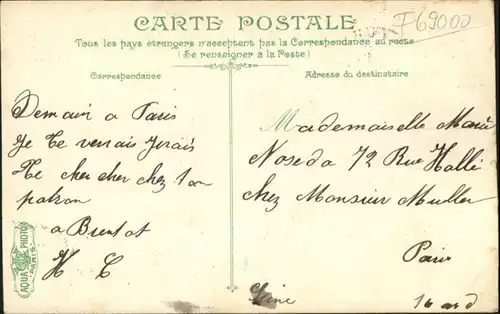 CARTE POSTALE
F69000
Tous les pays étrangers n'acceptent pas la Correspondance au recto
(Se renseigner à la Poste)
Correspondance
Adresse du destinataire
Demain a Paris
Je te verrais Jerais
Te cher cher chez ton
patron
a Bientot
H C
Mademoiselle Marie
Noseda 72 Rue Hallé
chez Monsieur Muller
Paris
Seine
14 ard
AQUA PHOTO
PARIS